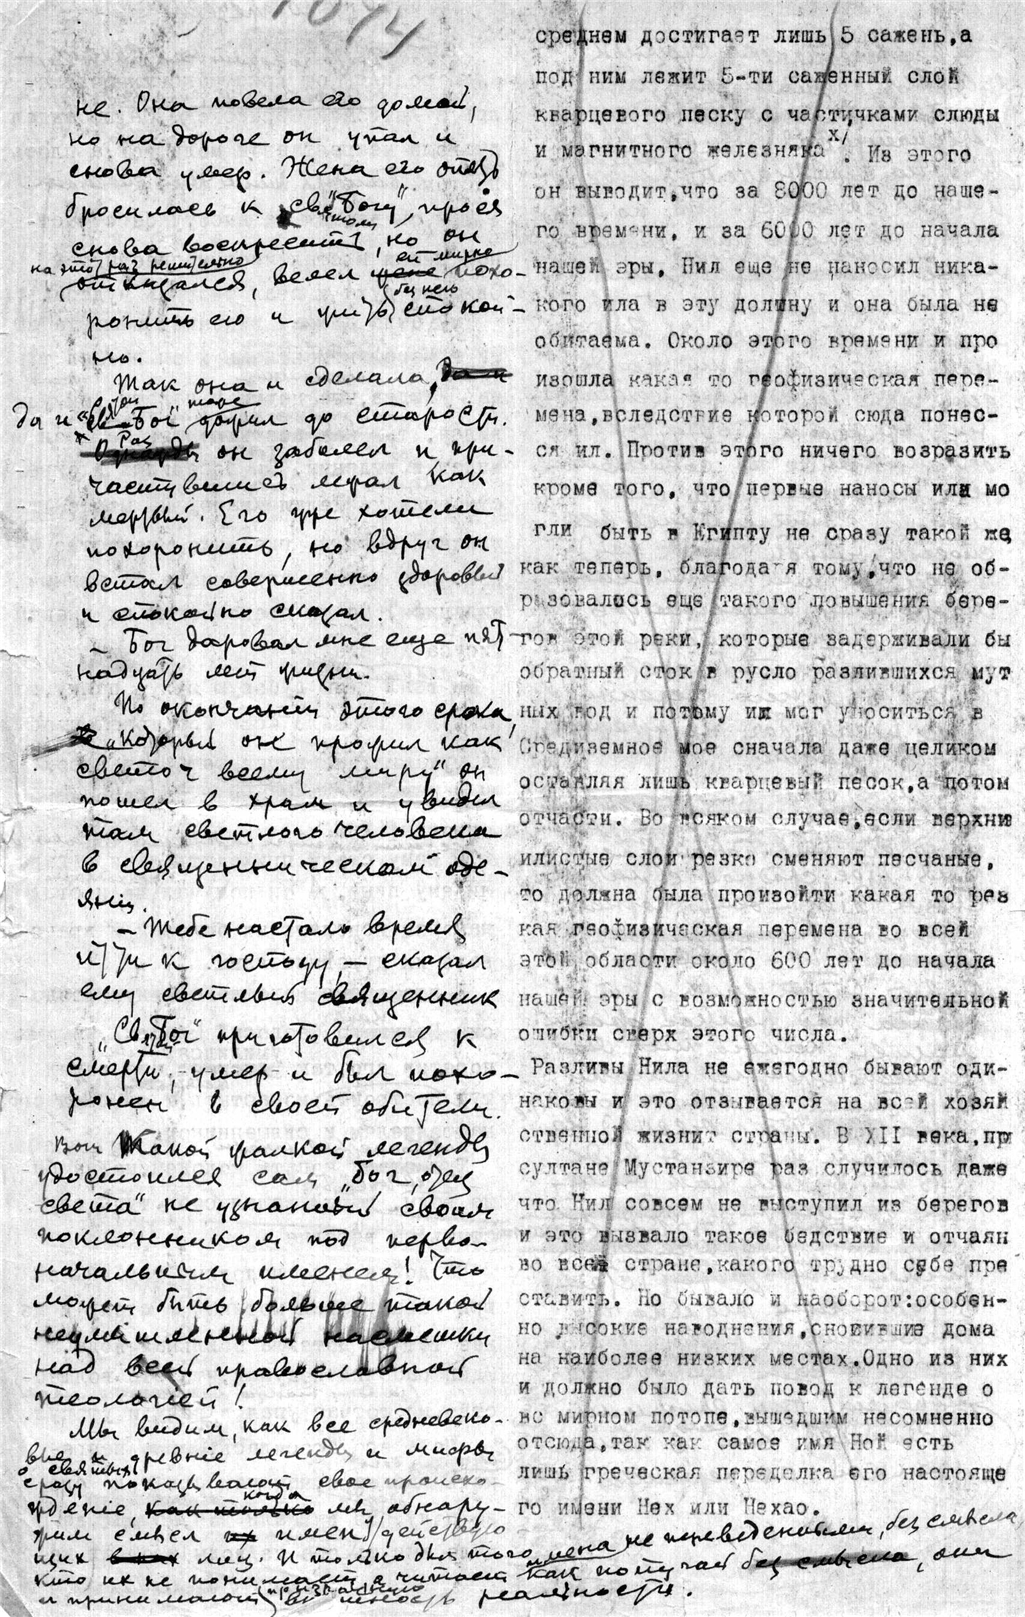 1074
не. Она повела его домой,
но на дороге он упал и
снова умер. Жена его опять
бросилась к „Святому Богу", прося
снова воскресить, но он
на этот раз решительно
отказался, велел ей мирно похо-
ронить его и жить без него спокой-
но.
Так она и сделала,
да и „Святой Бог" тоже дожил до старости.
Раз он заболел и при-
частившись лежал как
мертвый. Его уже хотели
похоронить, но вдруг он
встал совершенно здоровый
и спокойно сказал.
— Бог даровал мне еще пят-
надцать лет жизни.
По окончании этого срока,
„который он прожил как
светоч всему миру" он
пошел в храм и увидел
там светлого человека
в священническом одея-
янии.
— Тебе настало время
идти к господу, — сказал
ему светлый священник
„Святой Бог" приготовился к
смерти, умер и был похо-
ронен в своей обители.
Вот какой жалкой легенды
удостоился сам „Бог, отец
света" не узнанный своим
поклонником под перво-
начальным именем! Что
может быть больше такой
неумышленной насмешки
над всей православной
теологией!
Мы видим, как все средневеко-
вые и древние легенды и мифы
о святых
сразу показывают свое происхо-
ждение, когда мы обнару-
жим смысл имен действую-
щих лиц. И только для того
кто их не понимает, а читает имена не переведенными, без смысла,
как попугай, они
и принимают призрачную реальность.
среднем достигает лишь 5 сажень,а
под ним лежит 5-ти саженный слой
кварцевого песку с частичками слюды
и магнитного железняка х/. Из этого
он выводит,что за 8000 лет до наше-
го времени, и за 6000 лет до начала
нашей эры, Нил еще не наносил ника-
кого ила в эту долину и она была не
обитаема. Около этого времени и про
изошла какая то геофизическая пере-
мена,вследствие которой сюда понес-
ся ил. Против этого ничего возразить
кроме того, что первые наносы или мо
гли быть в Египту не сразу такой же,
как теперь, благодаря тому,что не об-
разовалось еще такого повышения бере-
гов этой реки, которые задерживали бы
обратный сток в русло разлившихся мут
ных вод и потому ил мог уноситься в
Средиземное мое сначала даже целиком
оставляя лишь кварцевый песок,а потом
отчасти. Во всяком случае,если верхние
илистые слои резко сменяют песчаные,
то должна была произойти какая то рез
кая геофизическая перемена во всей
этой области около 600 лет до начала
нашей эры с возможностью значительной
ошибки сверх этого числа.
Разливы Нила не ежегодно бывают оди-
наковы и это отзывается на всей хозяй
ственной жизнит страны. В XII века,при
султане Мустанзире раз случилось даже
что Нил совсем не выступил из берегов
и это вызвало такое бедствие и отчаян
во всей стране,какого трудно себе пре
ставить. Но бывало и наоборот:особен-
но высокие наводнения,сносившие дома
на наиболее низких местах.Одно из них
и должно было дать повод к легенде о
во мирном потопе,вышедшим несомненно
отсюда,так как самое имя Ной есть
лишь греческая переделка его настояще
го имени Нех или Нехао.